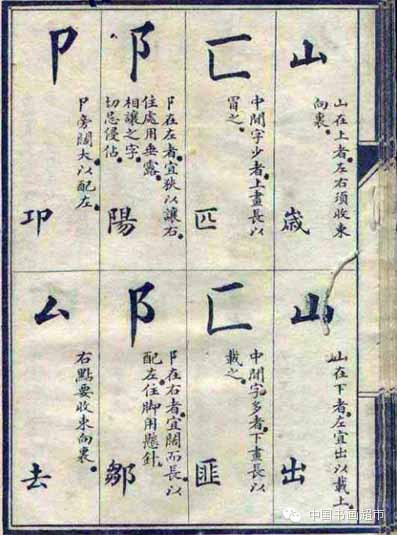 山
山在上者。左右須收束
向裏。
嵗
匚
中間字少者。上畫長以
冒之。
匹
阝
阝在左者。宜狹以讓右。
住處用垂露。
相讓之字。
切忌侵佔。
陽
卩
卩旁闊大。以配左。
卭
山
山在下者。左宜出以載上。
出
匚
中間字多者。下畫長以
載之。
匪
阝
阝在右者。宜闊而長。以
配左。住脚用懸針。
鄒
厶
右點要收束向裏。
去
中国书画超市